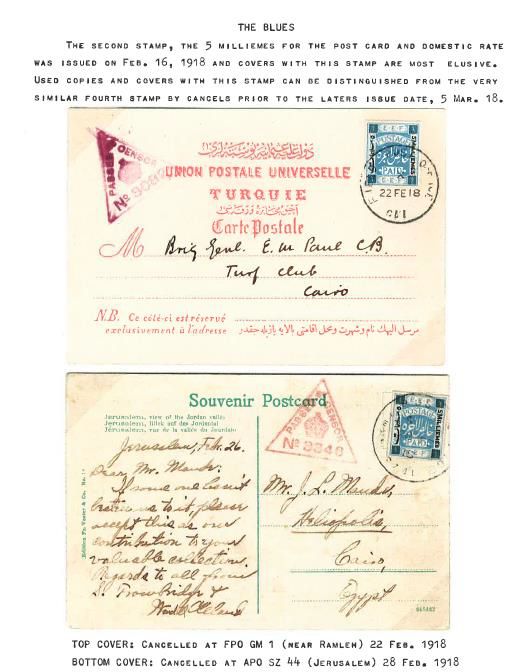 THE BLUES
THE SECOND STAMP, THE 5 MILLIEMES FOR THE POST CARD AND DOMESTIC RATE
WAS ISSUED ON FEB. 16, 1918 AND COVERS WITH THIS STAMP ARE MOST ELUSIVE.
USED COPIES AND COVERS WITH THIS STAMP CAN BE DISTINGUISHED FROM THE VERY
SIMILAR FOURTH STAMP BY CANCELS PRIOR TO THE LATERS ISSUE DATE, 5 MAR. 18.
PASSED CENSOR
E.E.F
POSTAGE
PAID
E.E.F
5 MILLIEMES
22 FE 18
UNION POSTALE UNIVERSELLE
TURQUIE
Carte Postale
M Brig Genl. E. M Paul C.B.
Turf Club
Cairo
N.B. Ce côté-ci est réservé
exclusivement à l'adresse
Souvenir Postcard
Jerusalem, view of the Jordan
PASSED CENSOR
No 3346
E.E.F
POSTAGE
PAID
E.E.F
5 MILLIEMES
Jerusalem, Feb. 26.
Dear Mr.
If some one hasn't
beaten us to it, please
accept this as our
contribution to your
valuable collection.
Regards to all from
Trowbridge &
Mr. J. L.
Heliopolis,
Cairo,
Egypt
TOP COVER: CANCELLED AT FPO GM 1 (NEAR RAMLEH) 22 FEB. 1918
BOTTOM COVER: CANCELLED AT APO SZ 44 (JERUSALEM) 28 FEB. 1918